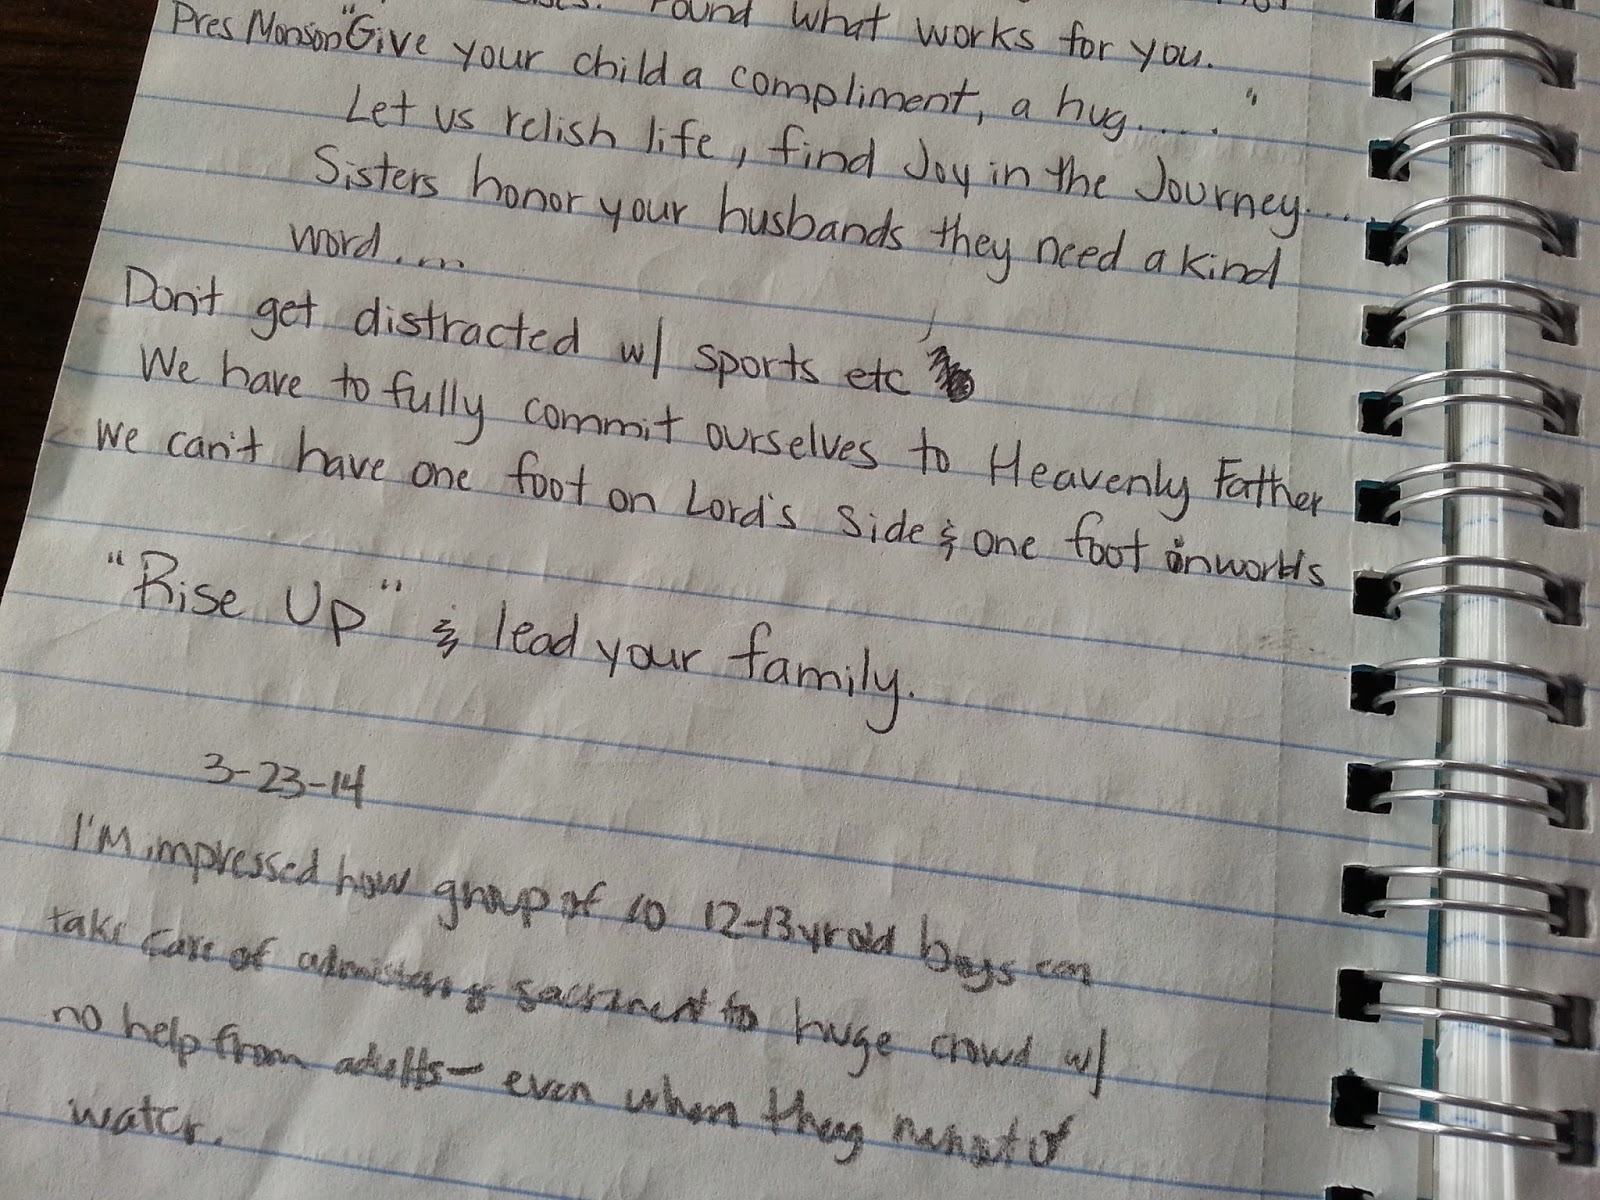 Found what works for you.
Pres Monson "Give your child a compliment, a hug..... "
Let us relish life, find Joy in the Journey....
Sisters honor your husbands they need a kind
word....
Don't get distracted w/ sports etc
We have to fully commit ourselves to Heavenly Father
We can't have one foot on Lord's side & one foot on worlds
"Rise Up" & lead your family.
3-23-14
I'M impressed how group of 10 12-13 yr old boys can
take care of sacrament to huge crowd w/
no help from adults - even when they of
water.